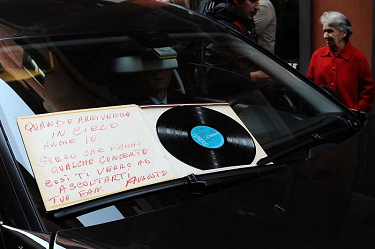 QUANDO ARRIVERÒ
IN CIELO
ANCHE IO
SPERO CHE FARAI
QUALCHE CONCERTO
COSÌ TI VERRÒ AD
ASCOLTARTI
TUO FAN. AUGUSTO